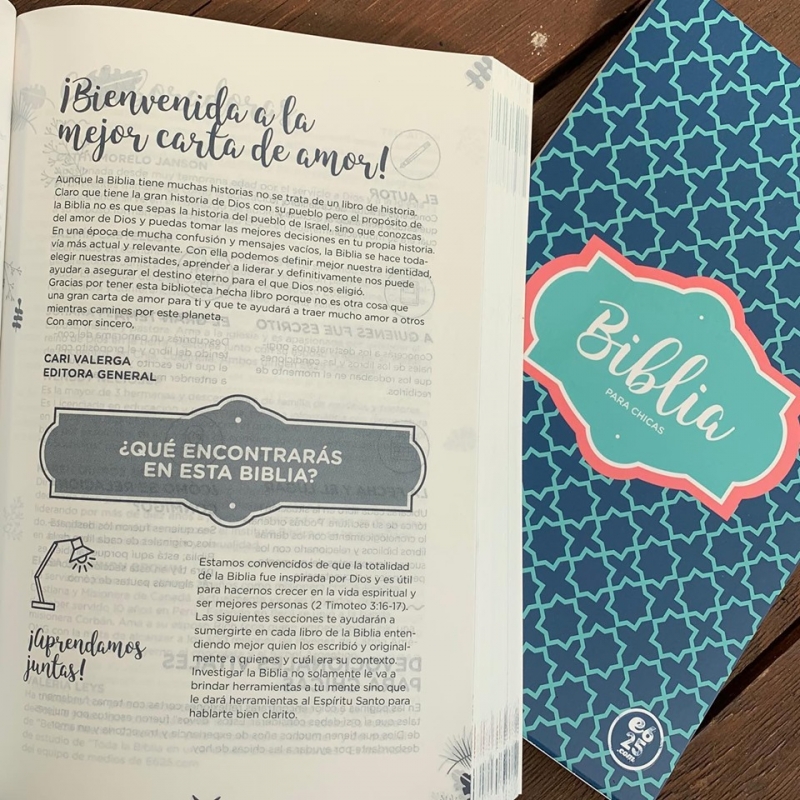 ¡Bienvenida a la
mejor carta de amor!
Aunque la Biblia tiene muchas historias no se trata de un libro de historia.
Claro que tiene la gran historia de Dios con su pueblo pero el propósito de
la Biblia no es que sepas la historia del pueblo de Israel, sino que conozcas
del amor de Dios y puedas tomar las mejores decisiones en tu propia historia.
En una época de mucha confusión y mensajes vacíos, la Biblia se hace toda-
vía más actual y relevante. Con ella podemos definir mejor nuestra identidad,
elegir nuestras amistades, aprender a liderar y definitivamente nos puede
ayudar a asegurar el destino eterno para el que Dios nos eligió.
Gracias por tener esta biblioteca hecha libro porque no es otra cosa que
una gran carta de amor para ti y que te ayudará a traer mucho amor a otros
mientras camines por este planeta.
Con amor sincero,
CARI VALERGA
EDITORA GENERAL
¿QUÉ ENCONTRARÁS
EN ESTA BIBLIA?
¡Aprendamos
juntas!
Estamos convencidos de que la totalidad
de la Biblia fue inspirada por Dios y es útil
para hacernos crecer en la vida espiritual y
ser mejores personas (2 Timoteo 3:16-17).
Las siguientes secciones te ayudarán a
sumergirte en cada libro de la Biblia enten-
diendo mejor quien los escribió y original-
mente a quienes y cuál era su contexto.
Investigar la Biblia no solamente le va a
brindar herramientas a tu mente sino que
le dará herramientas al Espíritu Santo para
hablarte bien clarito.
Biblia
PARA CHICAS
e6
25
.com